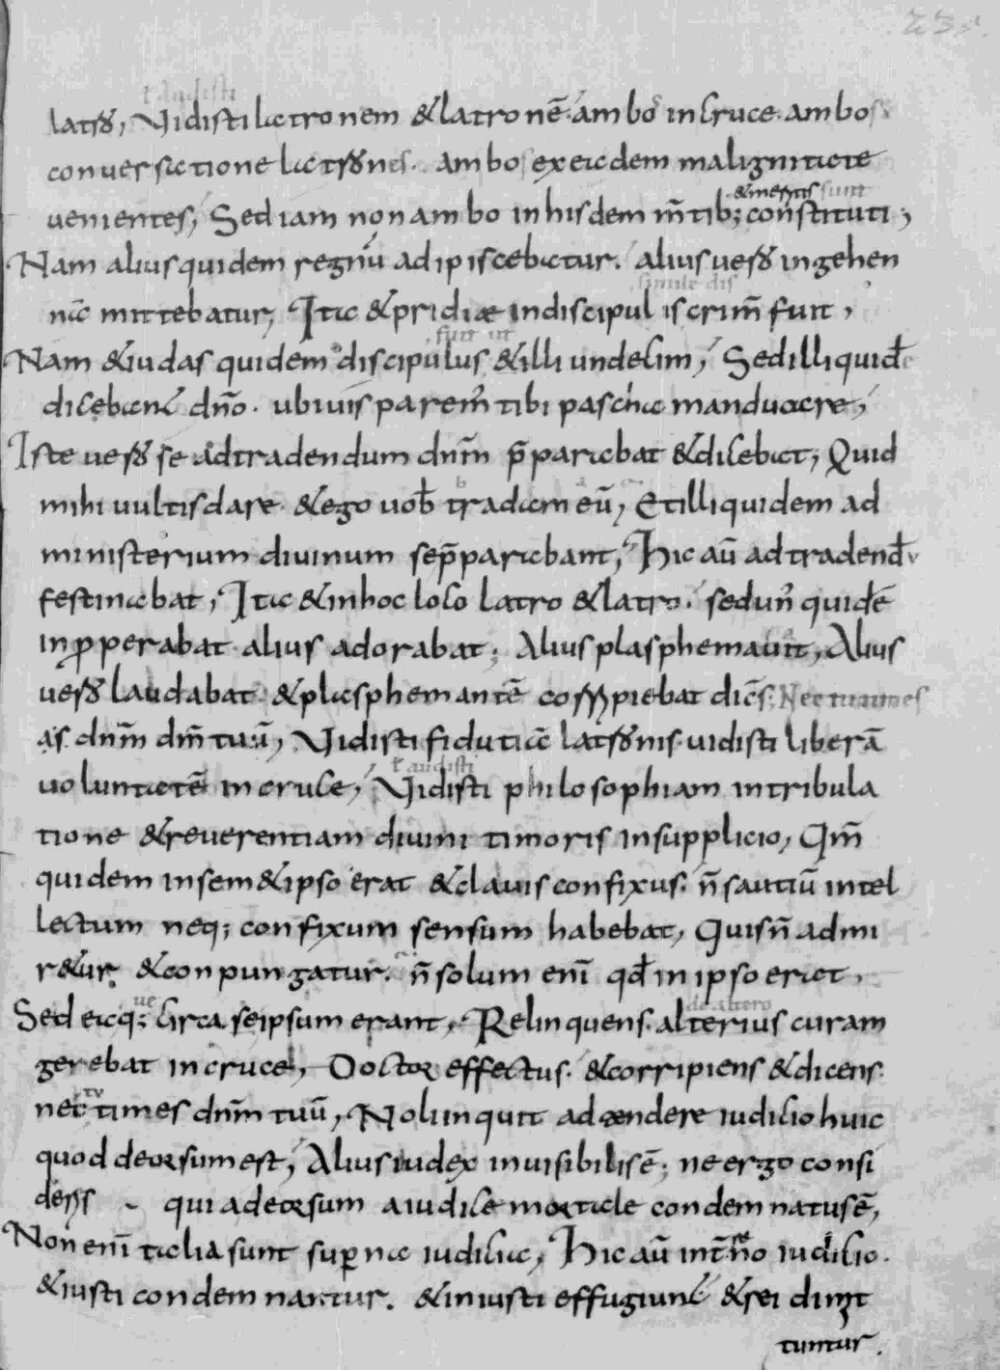 latro, Vidisti latronem &latronē. ambo in cruce. ambo
conversatione latrones. ambos exeadem malignitate
venientes; Sed iam non ambo inhisdem m̄tib; constituti;
Nam alius quidem regnū adipiscebatur. alius vero ingehen
na mittebatur, Ita &pridiæ indiscipulis crim̄ fuit,
Nam &iudas quidem discipulus &illi undecim, Sedilli quid̄
dicebant dn̄o. ubi vis parem' tibi pascha manducare,
Iste vero se adtradendum dn̄m p̄parabat &dicebat, Quid
mihi vultis dare &ego vob̄ tradam eū, Etilli quidem ad
ministerium divinum sep̄parabant, Hic aū ad tradend̄
festinabat, Ita &inhoc loco latro &latro. sed un' quidē
inpperabat alius adorabat; Alius plasphemavit, Alius
vero laudabat &plasphemantē corripiebat dic̄s; Nec tu times
dn̄m dm̄ tuū, Vidisti fidutiā latronis. vidisti liberā
voluntatē in cruce, Vidisti philosophiam intribula
tione &reverentiam divini timoris insupplicio, Qm̄
quidem insem&ipso erat &clavis confixus. n̄ sautiū intel
lectum neq; confixum sensum habebat, Quis n̄ admi
r&ur &conpungatur. n̄ solum enī qd̄ in ipso erat.
Sed eaq; circa seipsum erant, Relinquens. alterius curam
gerebat in cruce, Doctor effectus. &corripiens &dicens.
nec tu times dn̄m tuū, Noli inquit adtendere iudicio huic
quod deorsum est, Alius iudex invisibilis ē; ne ergo consi
deres qui adeorsum a iudice mortale condemnatus ē,
Non enī talia sunt superna iudicia, Hic aū int̄reno iudicio.
&iusti condemnantur. &iniusti effugiunt &rei dimit
tuntur.